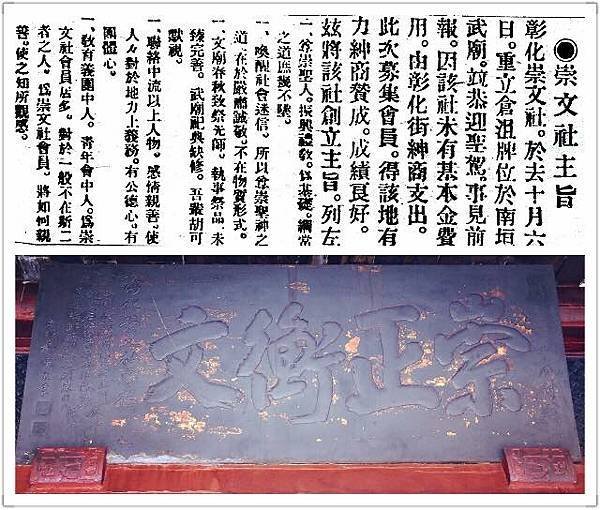 ◉崇文社主旨
彰化崇文社。於去十月六
日。重立倉沮牌位於南垣
武廟。並恭迎聖駕。事見前
報。因該社末有基本金費
用。由彰化街紳商支出。
此次募集會員。得該地有
力紳商賛成。成績良好。
玆將該社創立主旨。列左
一、尊崇聖人。振興禮敎。爲基礎。綱常
之道庶幾不墜。
一、喚醒社會迷信。所以尊崇聖神之
道在於嚴肅誠敬。不在物質形式。
一、文廟春秋致祭先師。執事祭品。未
臻完善。武廟祀典缺修。吾輩胡可
默視。
一、聯絡中流以上人物。感情親善。使
人々對於地方上義務。有公德心。有
團體心。
一、敎育義團中人。青年會中人。爲崇
文社會員居多。對於一般不在斯二
者之人。爲崇文社會員。將如何親
善。使之知所觀感。
崇正衡文